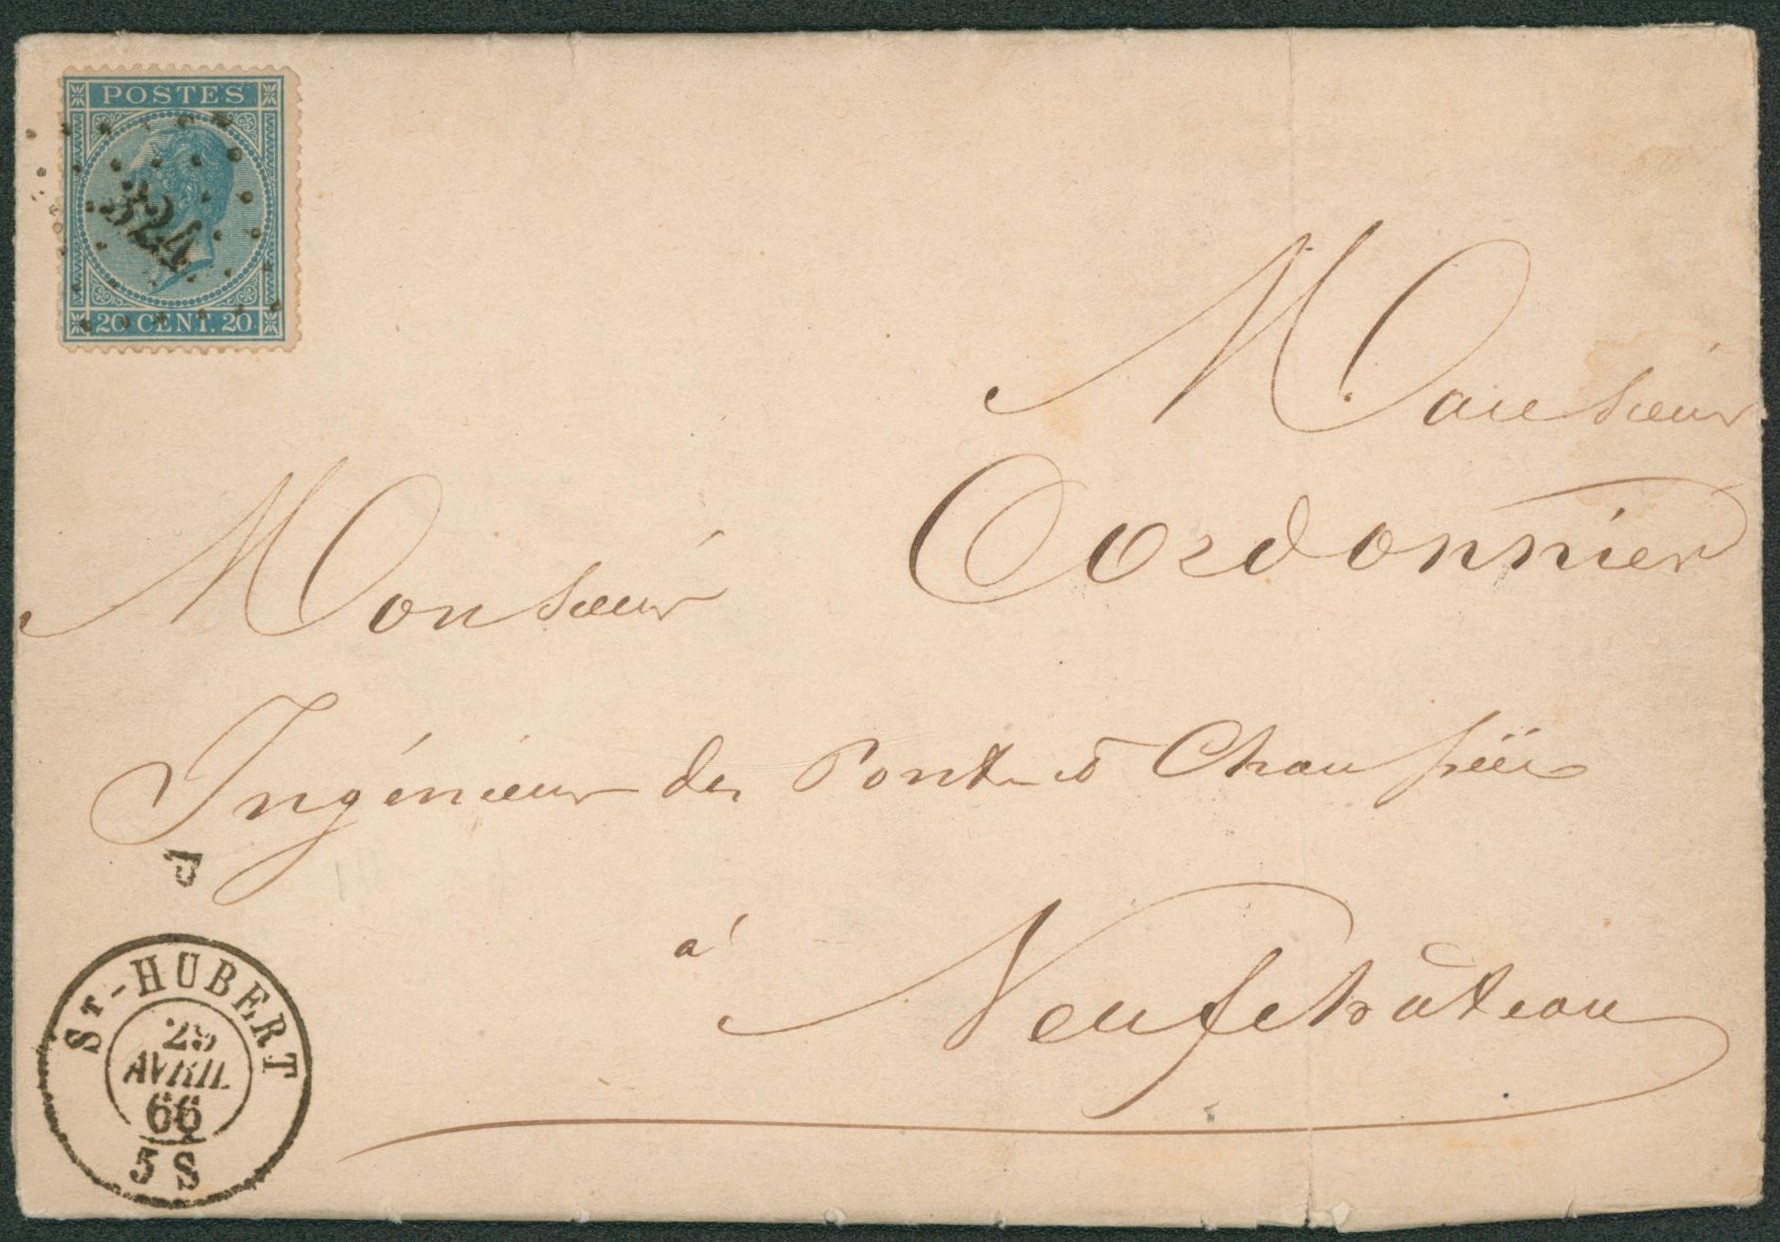 POSTES
324
20 CENT. 20
Monsieur
Monsieur Cordonnier
Ingénieur des Ponts & Chaussées
à Neufchâteau
ST-HUBERT
29
AVRIL
66
5 S